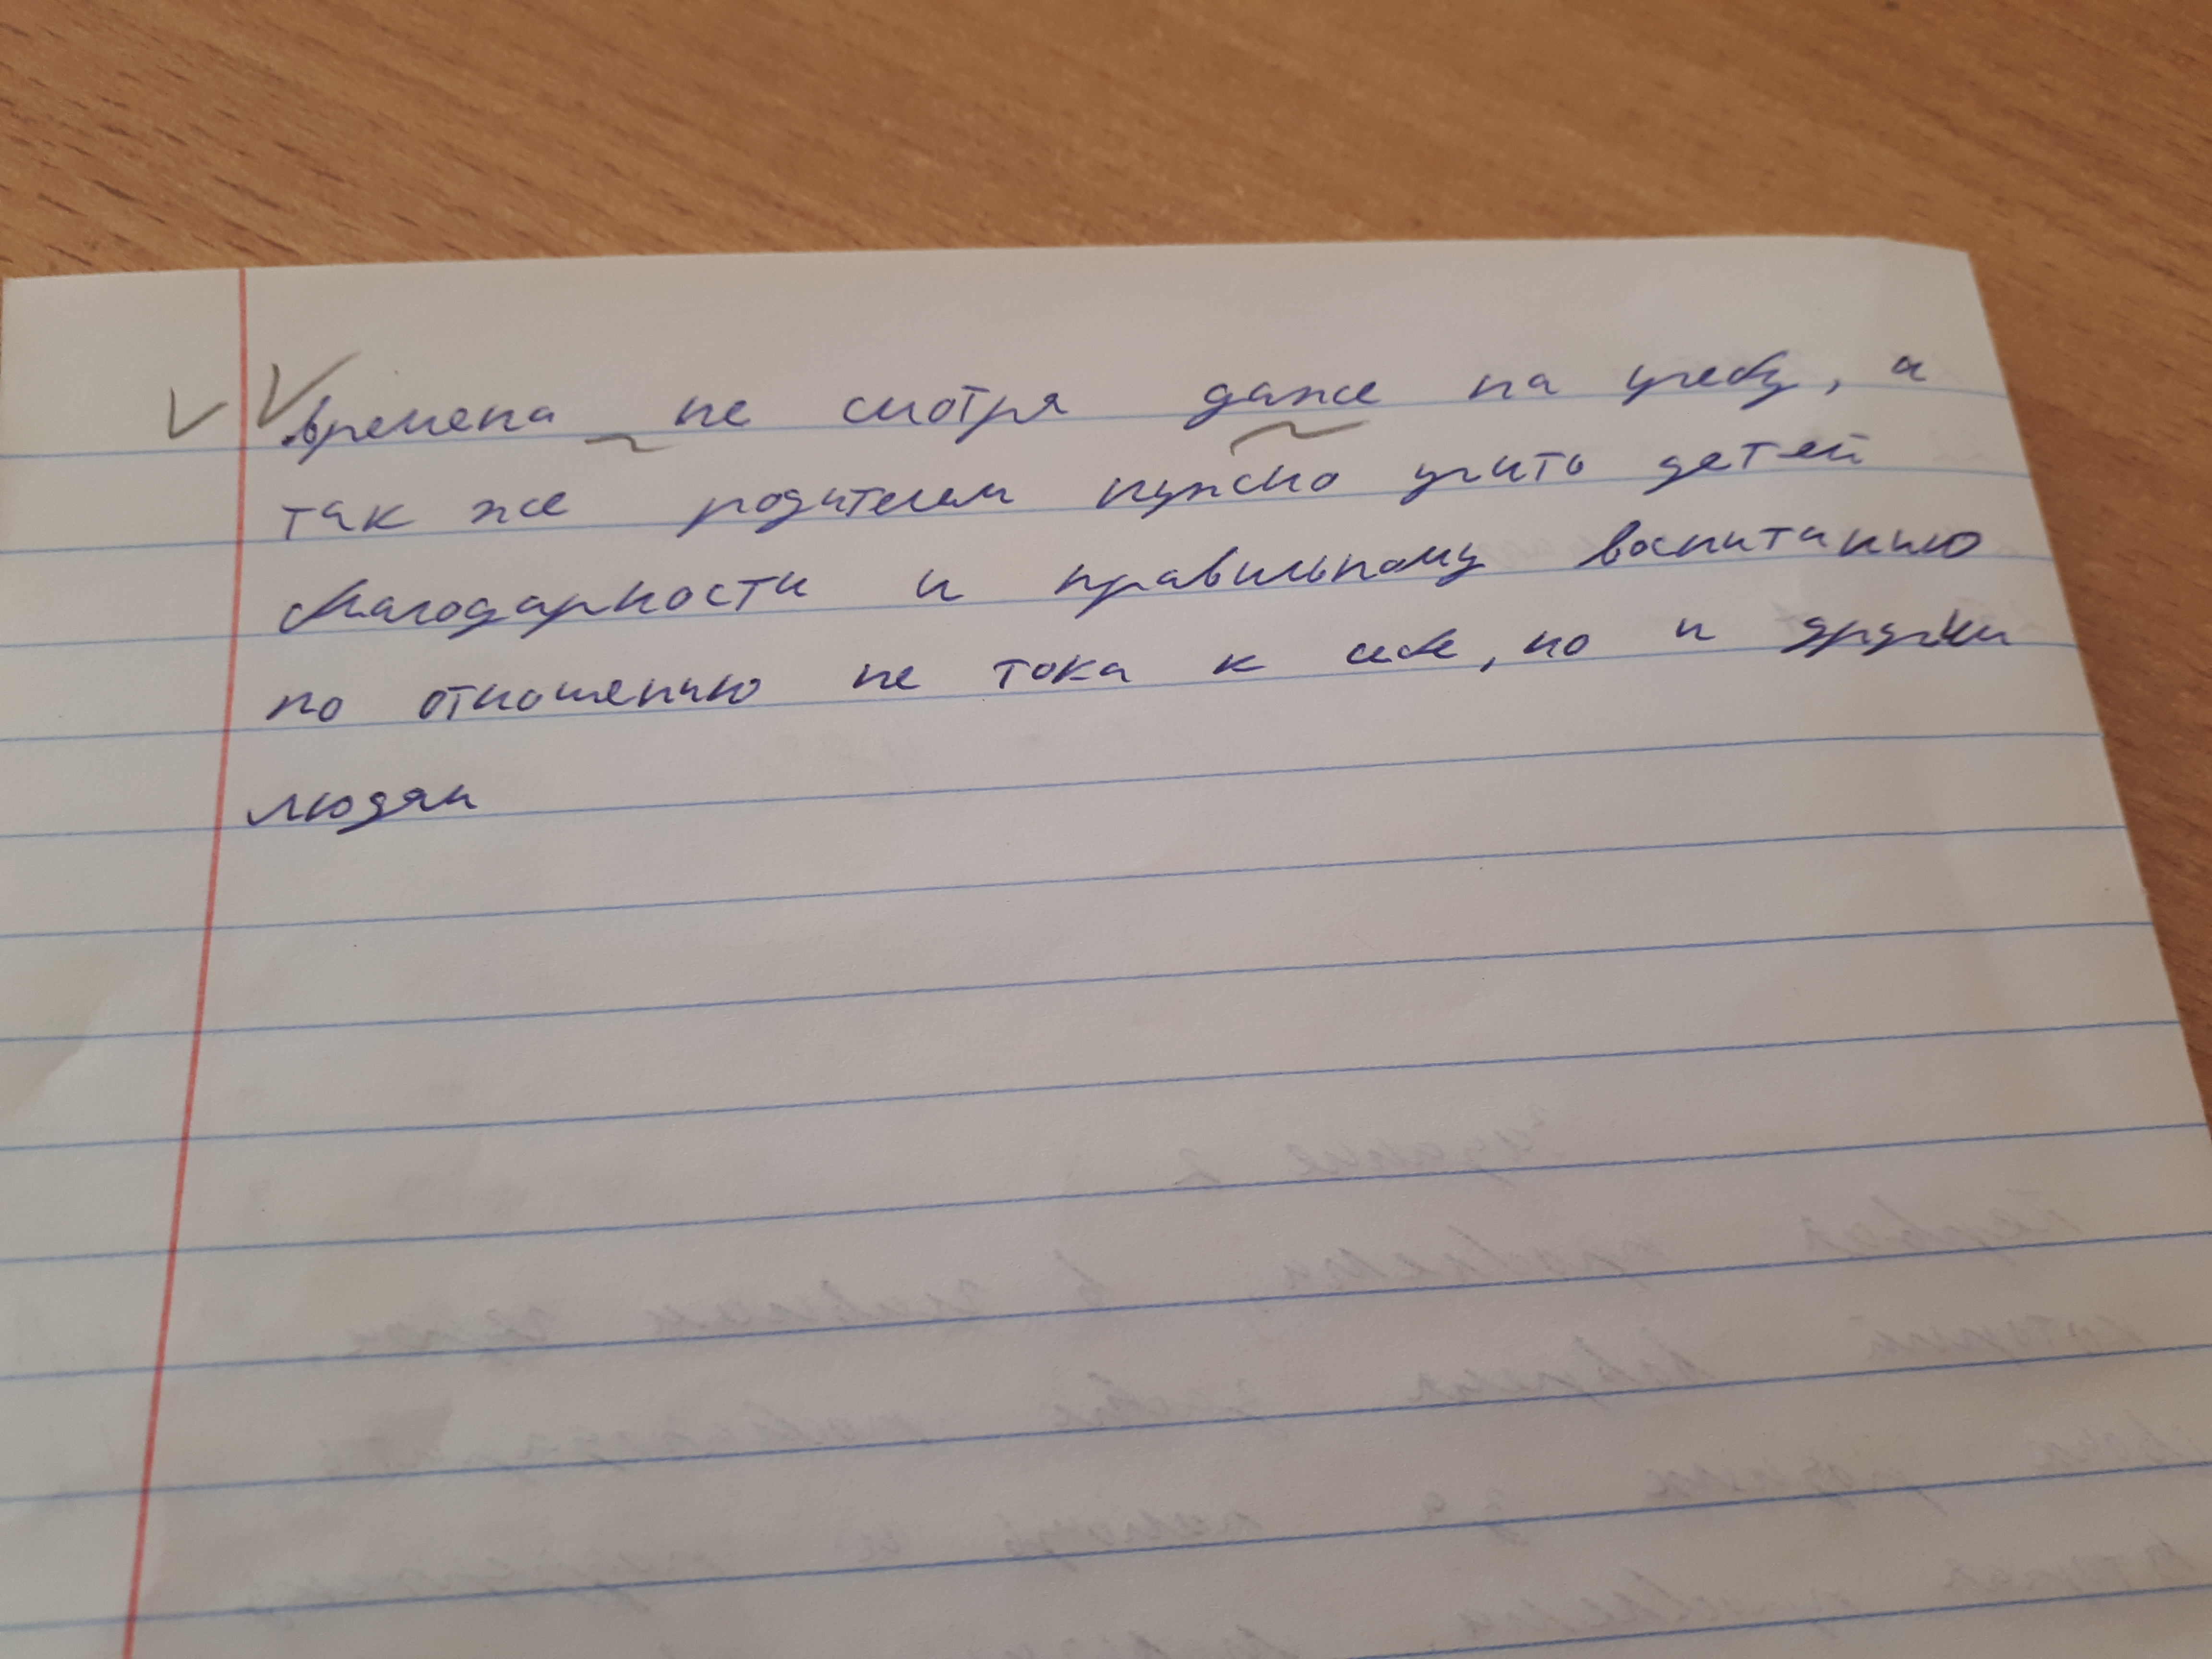 времена не смотря даже на учебу, а
так же родителем нужно учить детей
благодарности и правильному воспитанию
по отношению не тока к себе, но и други
людям